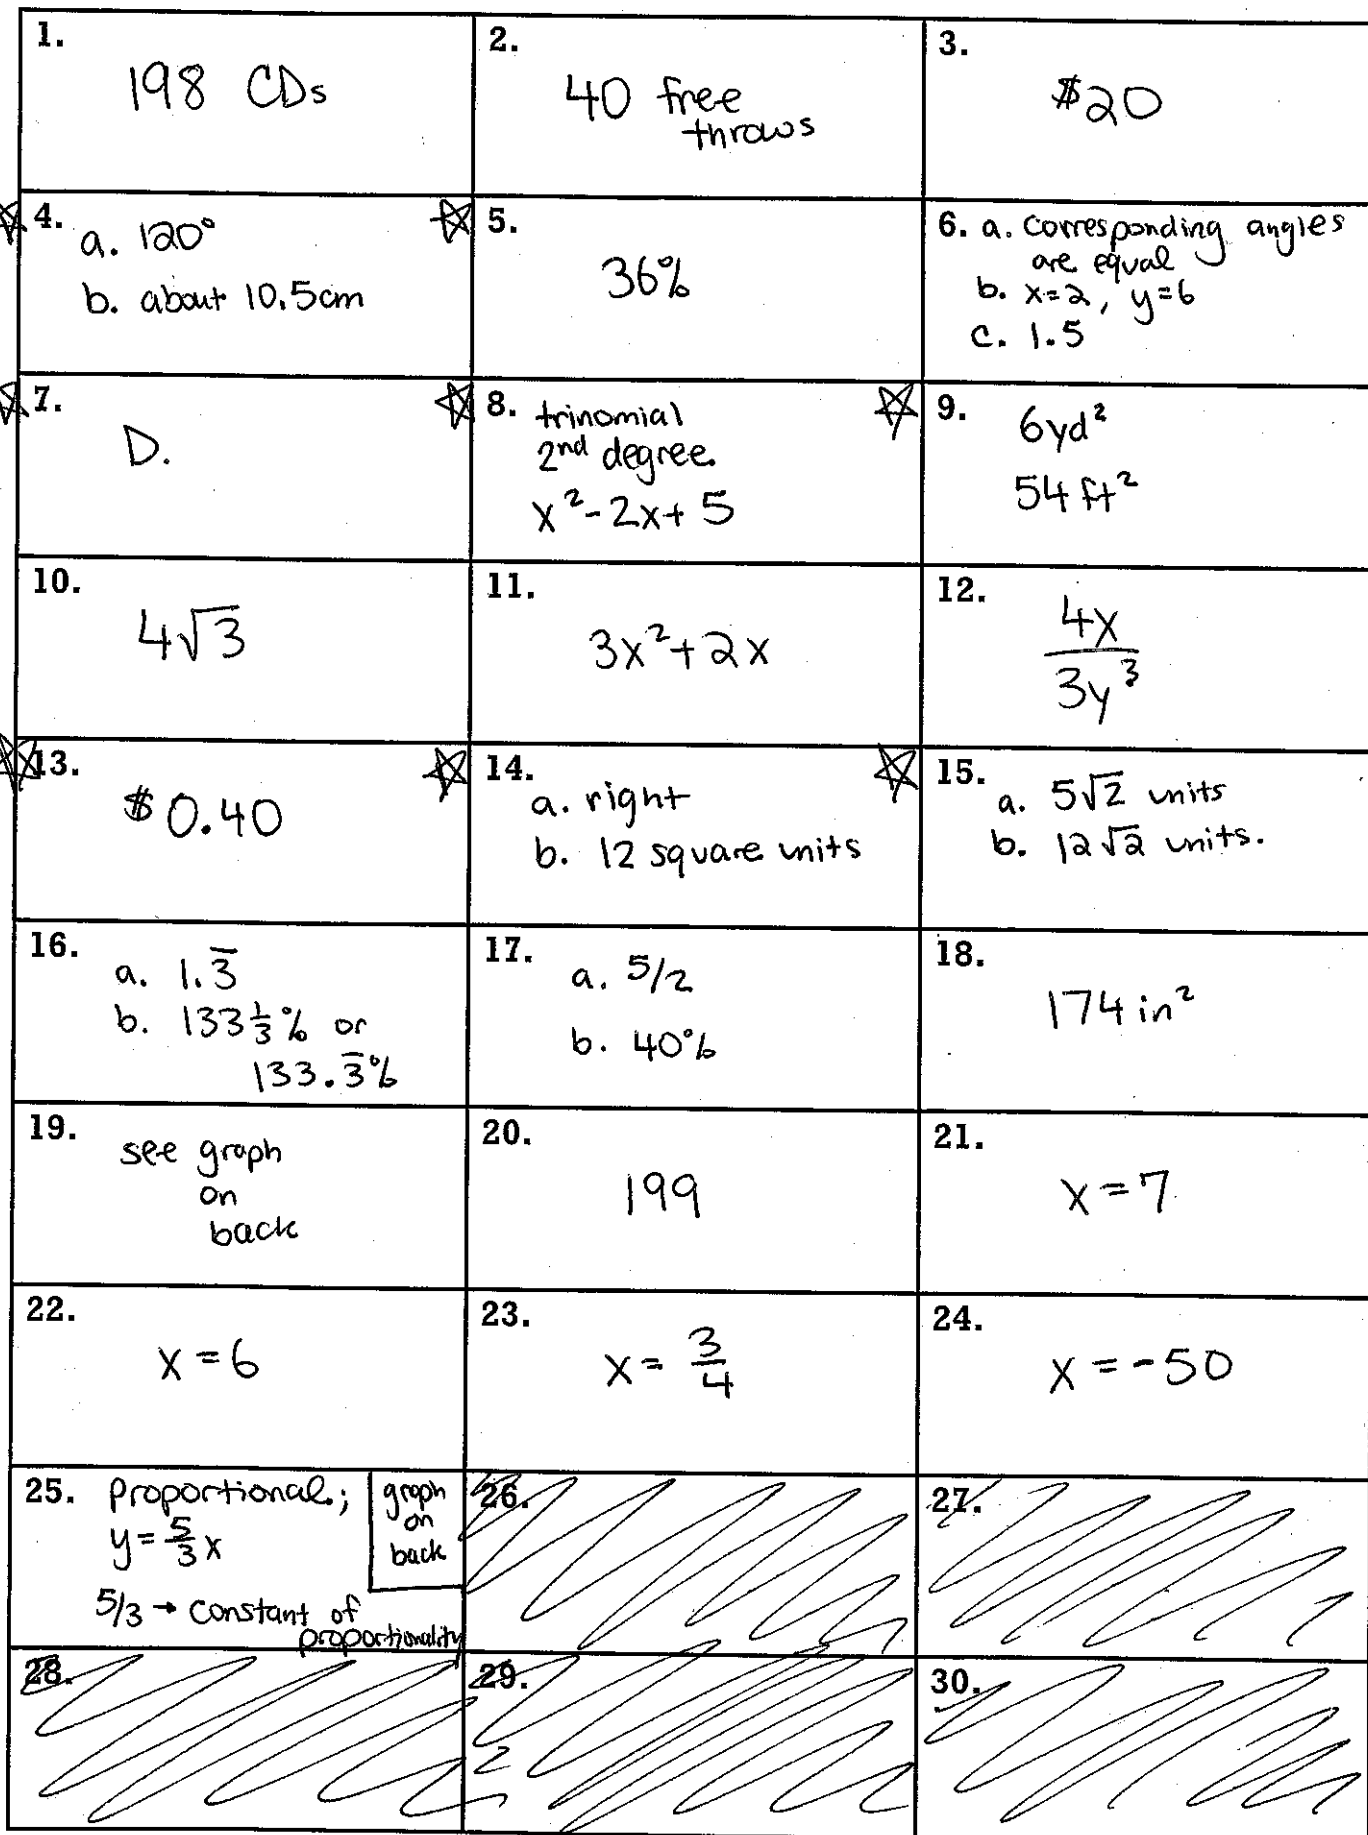 1.
198 CDs
2.
40 free
throws
3.
$20
4.
a. 120°
b. about 10.5cm
5.
36%
6. a. Corresponding angles
are equal
b. x=2, y=6
c. 1.5
7.
D.
8. trinomial
2nd degree.
x²-2x+5
9.
6yd²
54 ft²
10.
4√3
11.
3x²+2x
12.
4x
3y³
13.
$0.40
14.
a. right
b. 12 square units
15.
a. 5√2 units
b. 12√2 units.
16.
a. 1.3̅
b. 133 1/3% or
133.3̅%
17.
a. 5/2
b. 40%
18.
174 in²
19.
see graph
on
back
20.
199
21.
x=7
22.
x=6
23.
x= 3/4
24.
x=-50
25. proportional;
y=5/3 x
graph
on
back
5/3 → constant of
proportionality
26.
27.
28.
29.
30.